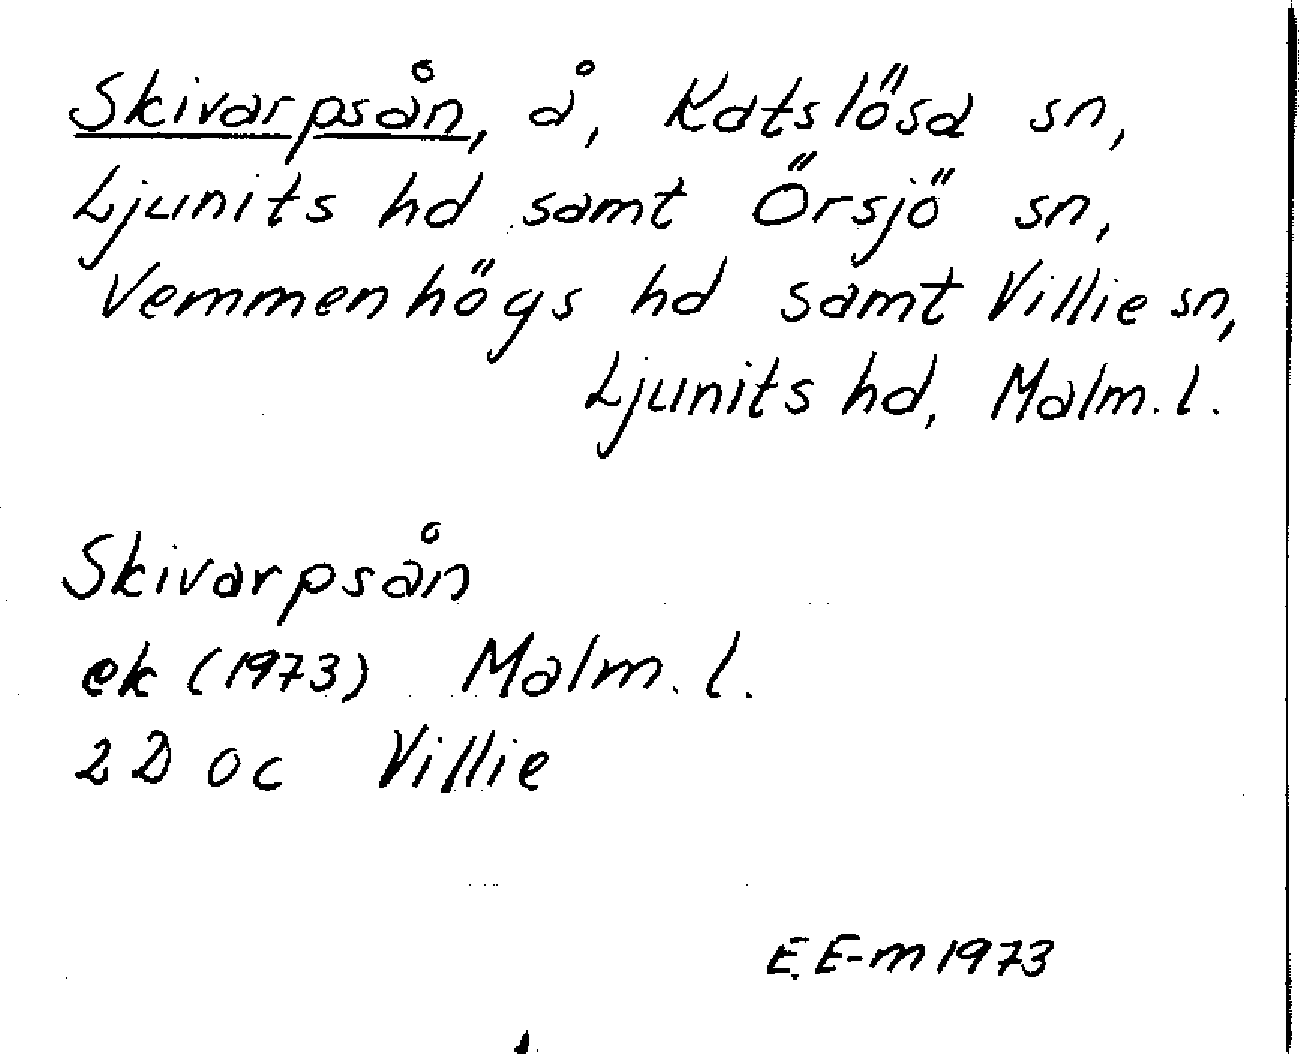 Skivarpsån, å, Katslösa sn,
Ljunits hd samt Örsjö sn,
Vemmenhögs hd samt Villie sn,
Ljunits hd, Malm. l.
Skivarpsån
ek (1973) Malm. l.
2 D oc Villie
E. E-m 1973